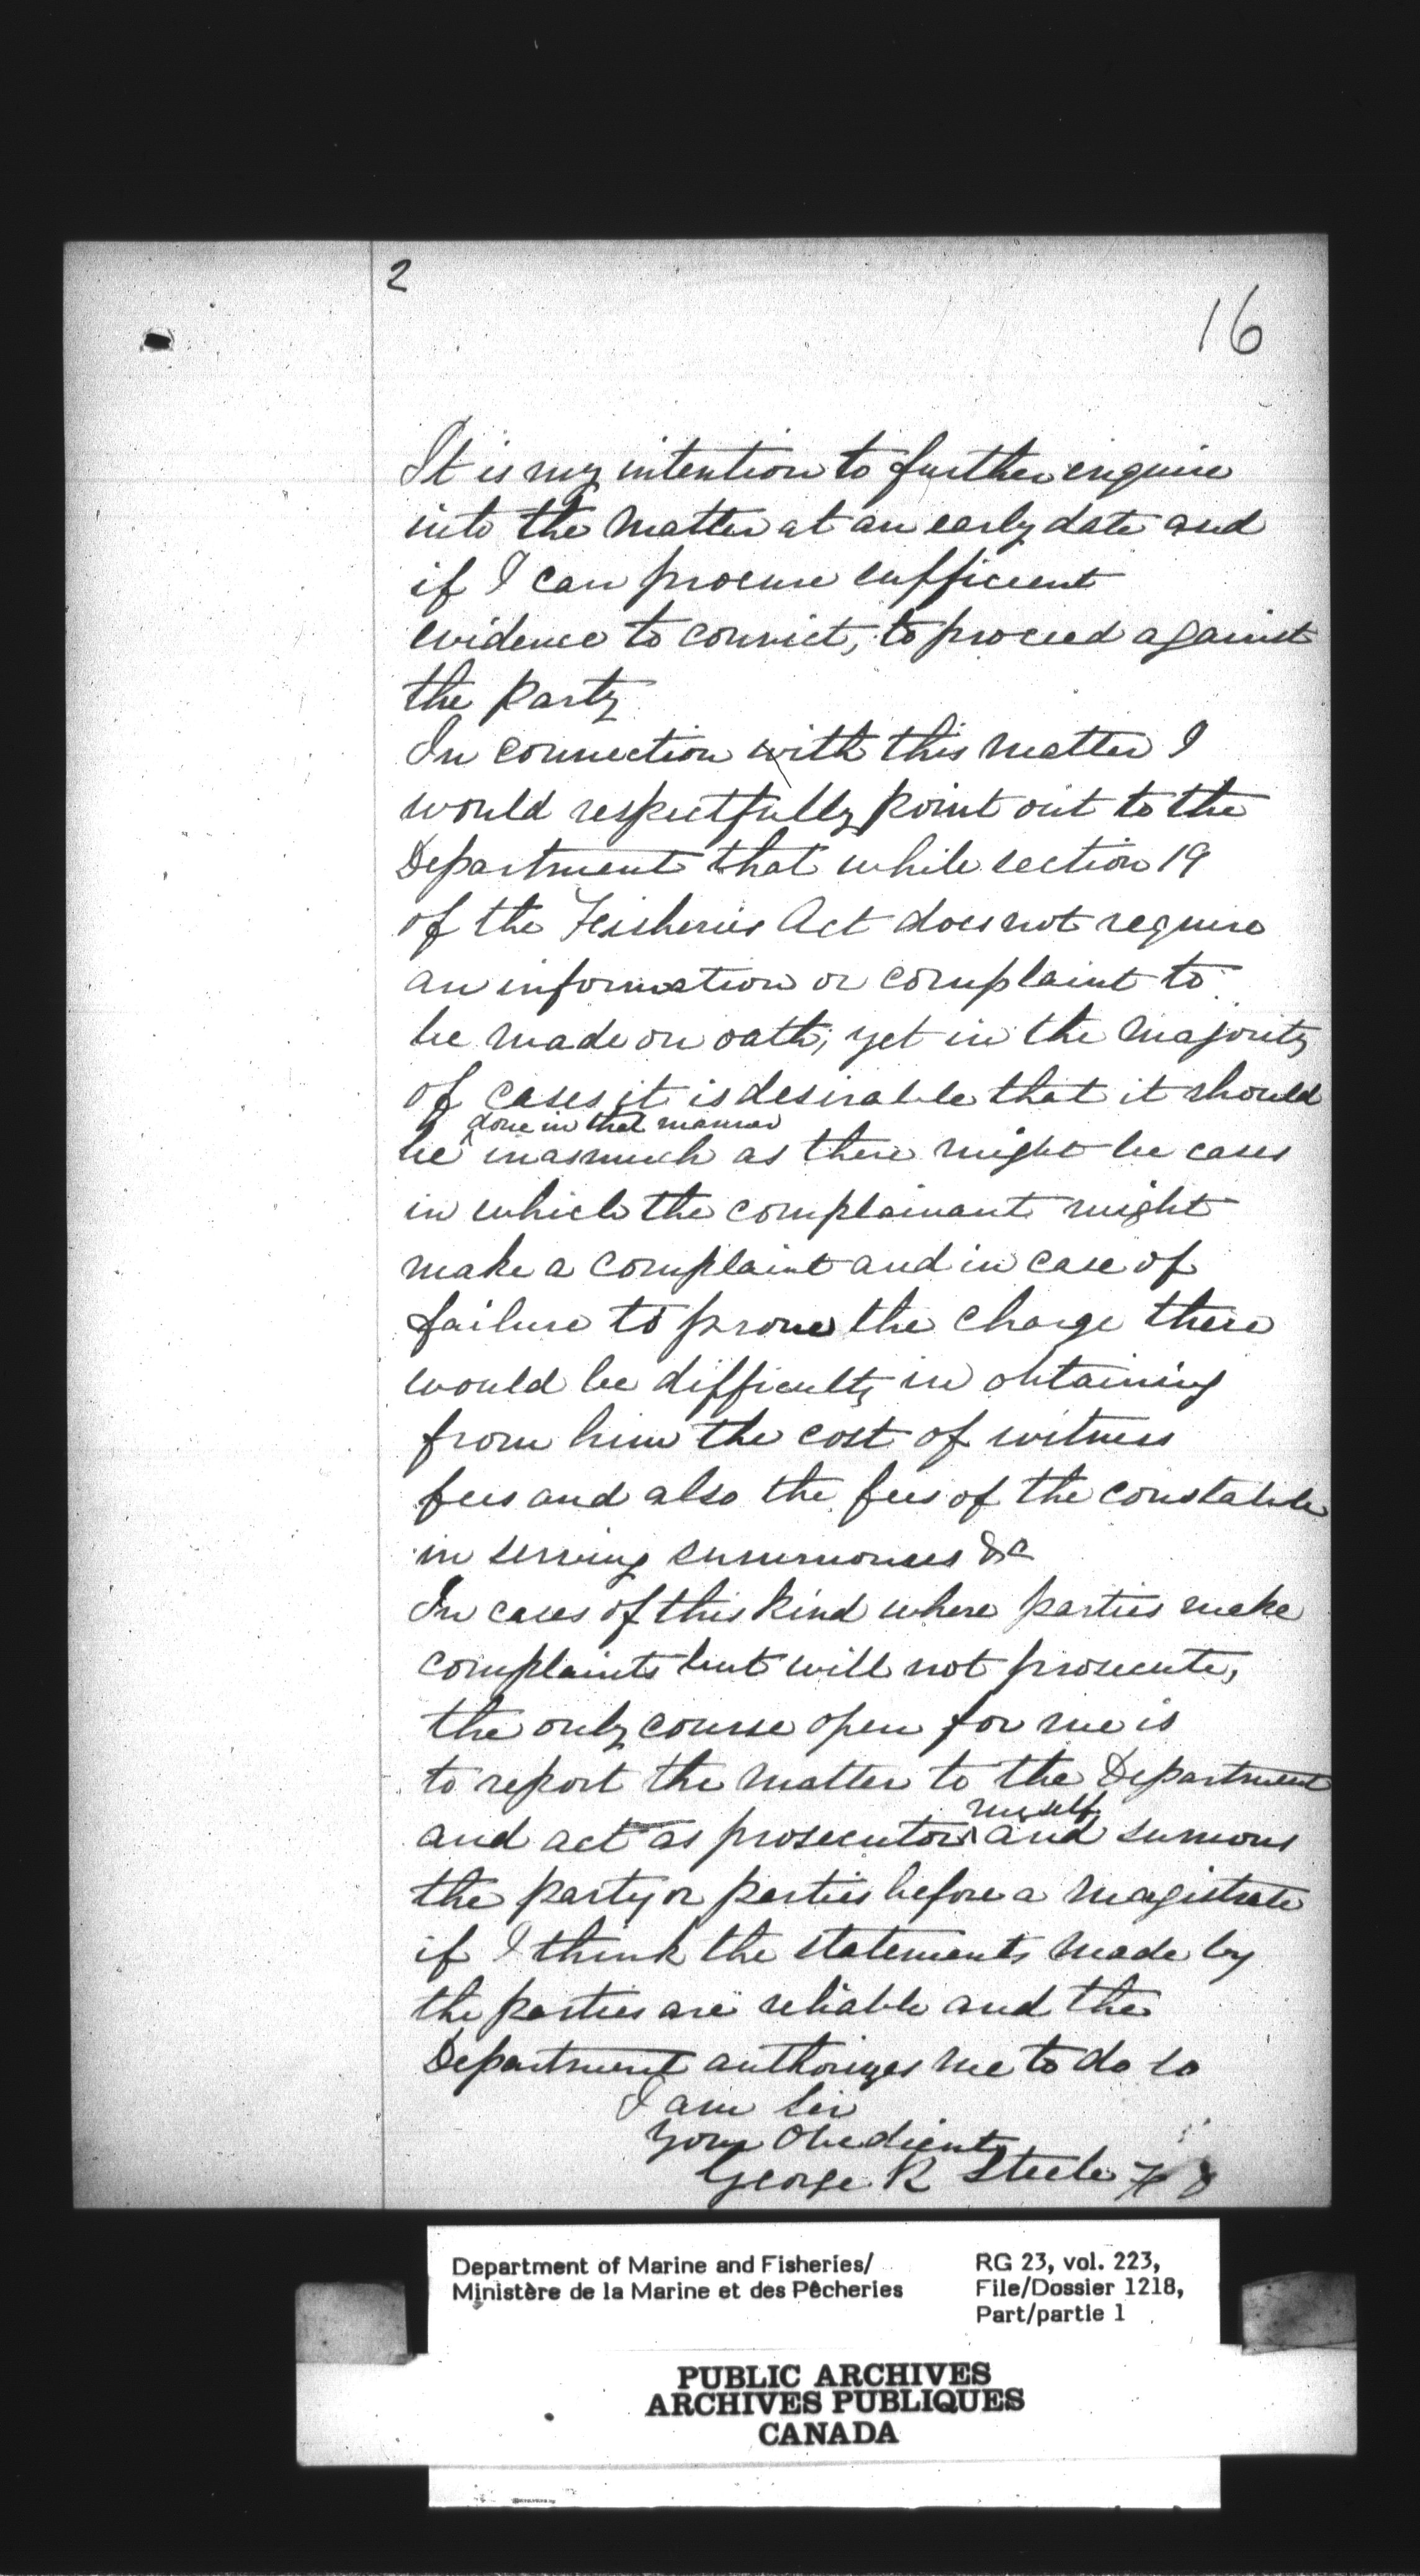 2
16
It is my intention to further enquire
into the matter at an early date and
if I can procure sufficient
evidence to convict, to proceed against
the party
In connection with this matter I
would respectfully point out to the
Department that while section 19
of the Fisheries Act does not require
an information or complaint to
be made on oath, yet in the majority
of cases it is desirable that it should
done in that manner
be inasmuch as there might be cases
in which the complainant might
make a complaint and in case of
failure to prove the charge there
would be difficulty in obtaining
from him the cost of witness
fees and also the fees of the constable
in serving summonses &c
In cases of this kind where parties make
complaints but will not prosecute,
the only course open for me is
to report the matter to the Department
myself
and act as prosecutor and sumons
the party or parties before a magistrate
if I think the statements made by
the parties are reliable and the
Department authorizes me to do so
I am Sir
Your Obedient
George R Steele
Department of Marine and Fisheries/
Ministère de la Marine et des Pêcheries
RG 23, vol. 223,
File/Dossier 1218,
Part/partie 1
PUBLIC ARCHIVES
ARCHIVES PUBLIQUES
CANADA